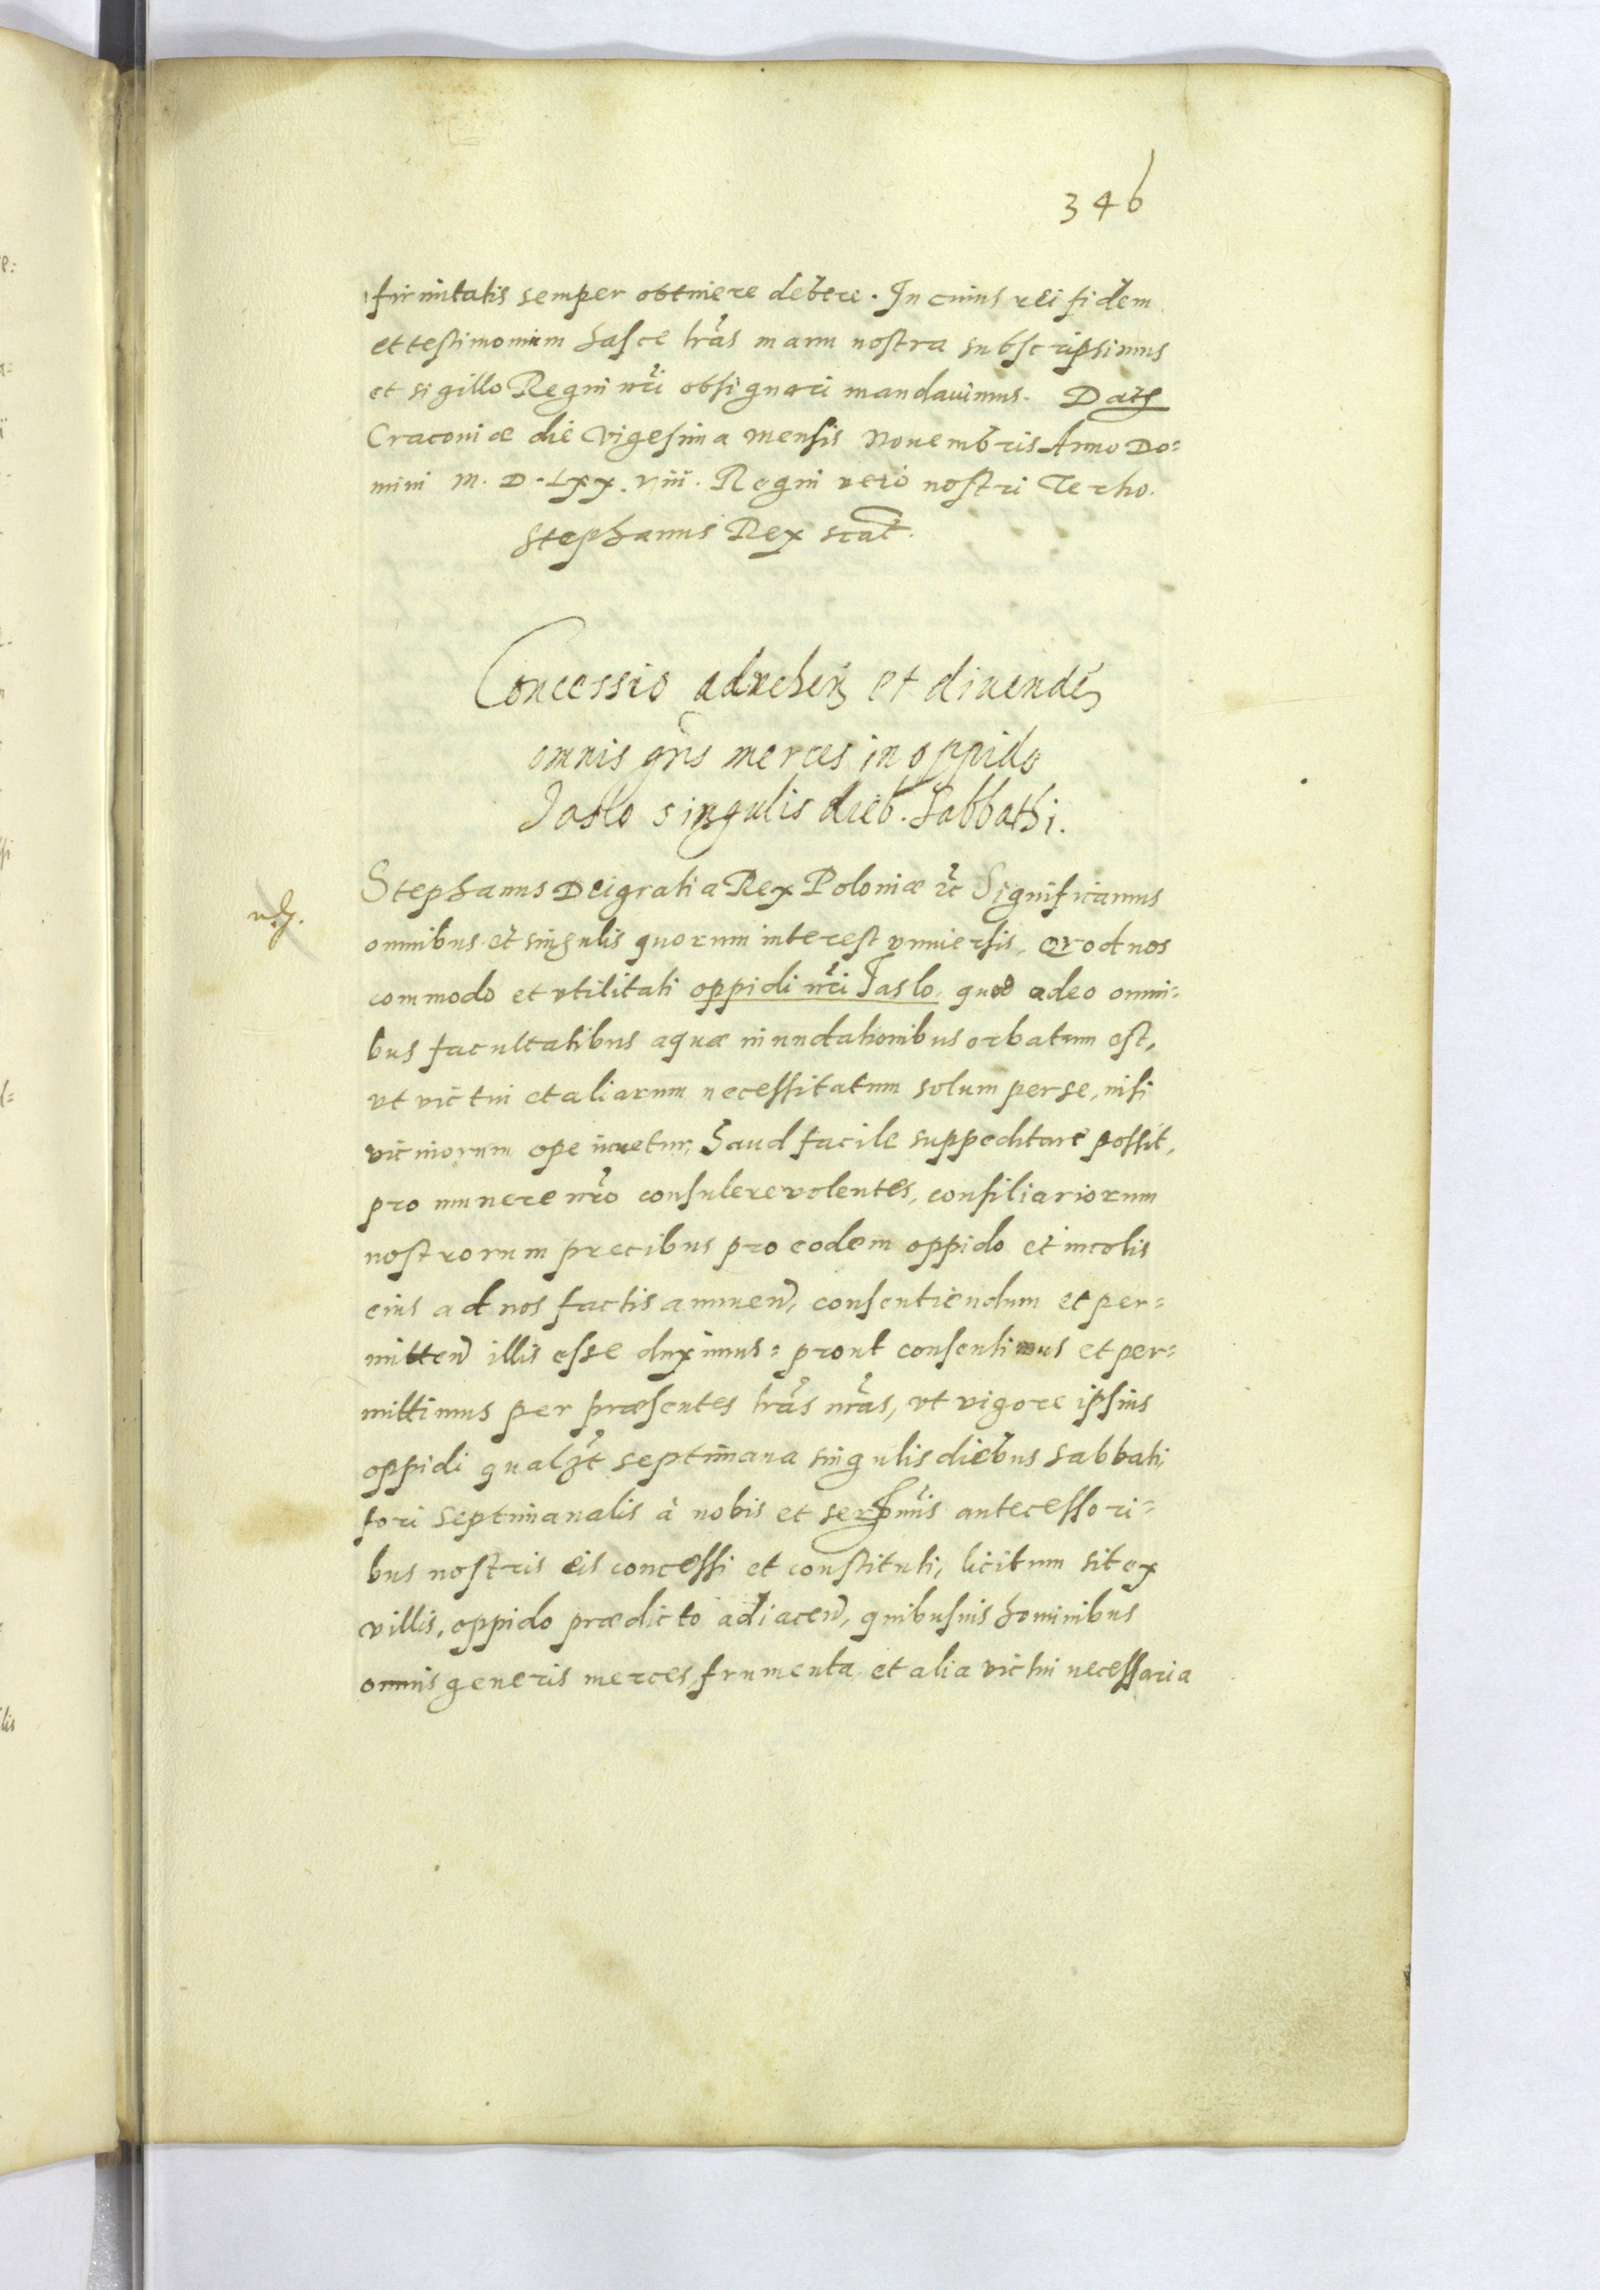 346
firmitatis semper obtinere debere. In cuius rei fidem
et testimonium hasce lras manu nostra subscripsimus
et sigillo Regni nri obsignari mandauimus. Datę
Cracouiæ die Vigesima mensis Nouembris Anno Do=
mini M. D. Lxx. viii. Regni vero nostri Tertio.
Stephanus Rex scat.
Concessio aduehen et diuenden
omnis gnis merces in oppido
Jaslo singulis dieb. Sabbathi.
Stephanus Dei gratia Rex Poloniæ etc Significamus
omnibus et singulis quorum interest vniuersis, Quod nos
commodo et vtilitati oppidi nri Jaslo, quod adeo omni=
bus facultatibus aquæ inundationibus orbatum est,
vt victui et aliarum necessitatum solum per se, nisi
vicinorum ope iuuetur, haud facile suppeditare possit,
pro munere nro consulere volentes, consiliariorum
nostrorum precibus pro eodem oppido et incolis
eius ad nos factis annuen, consentiendum et per=
mitten illis esse duximus: prout consentimus et per=
mittimus per præsentes lras nras, vt vigore ipsius
oppidi qualzt septimana singulis diebus sabbati,
fori septimanalis à nobis et sermis antecessori=
bus nostris eis concessi et constituti, licitum sit ex
villis, oppido prædicto adiacen, quibusuis hominibus
omnis generis merces, frumenta et alia victui necessaria